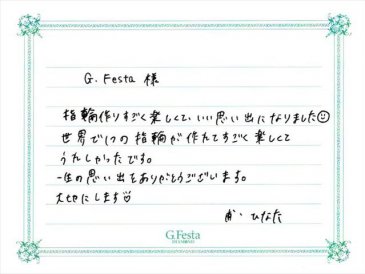 G. Festa 様
指輪作りすごく楽しくて、いい思い出になりました☺
世界で1つの指輪が作れてすごく楽しくて
うれしかったです。
一生の思い出をありがとうございます。
大切にします
ひなた
G.Festa
DIAMOND